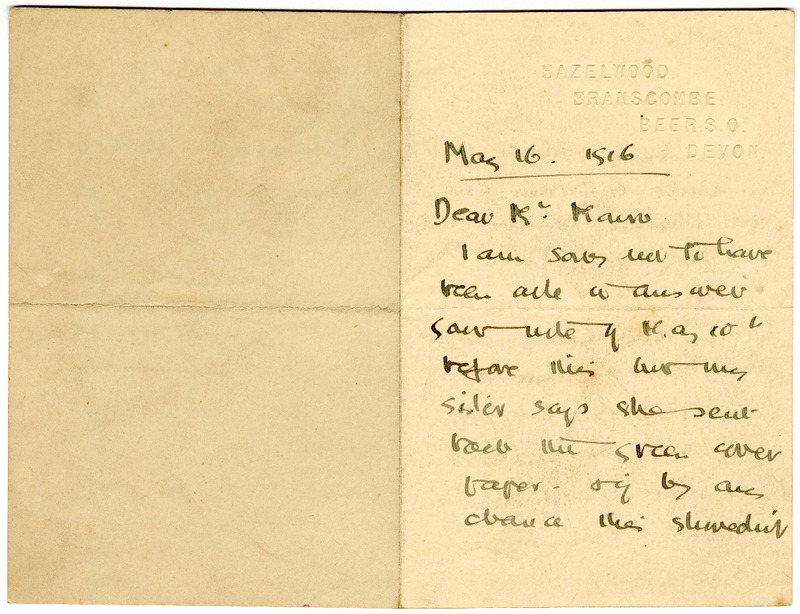 HAZELWOOD
BRANSCOMBE
BEER S.O.
DEVON.
May 16. 1916
Dear Mr.
I am sorry not to have
been able to answer
your note of May 10th
before this but my
sister says she sent
back the green cover
paper. If by any
chance this